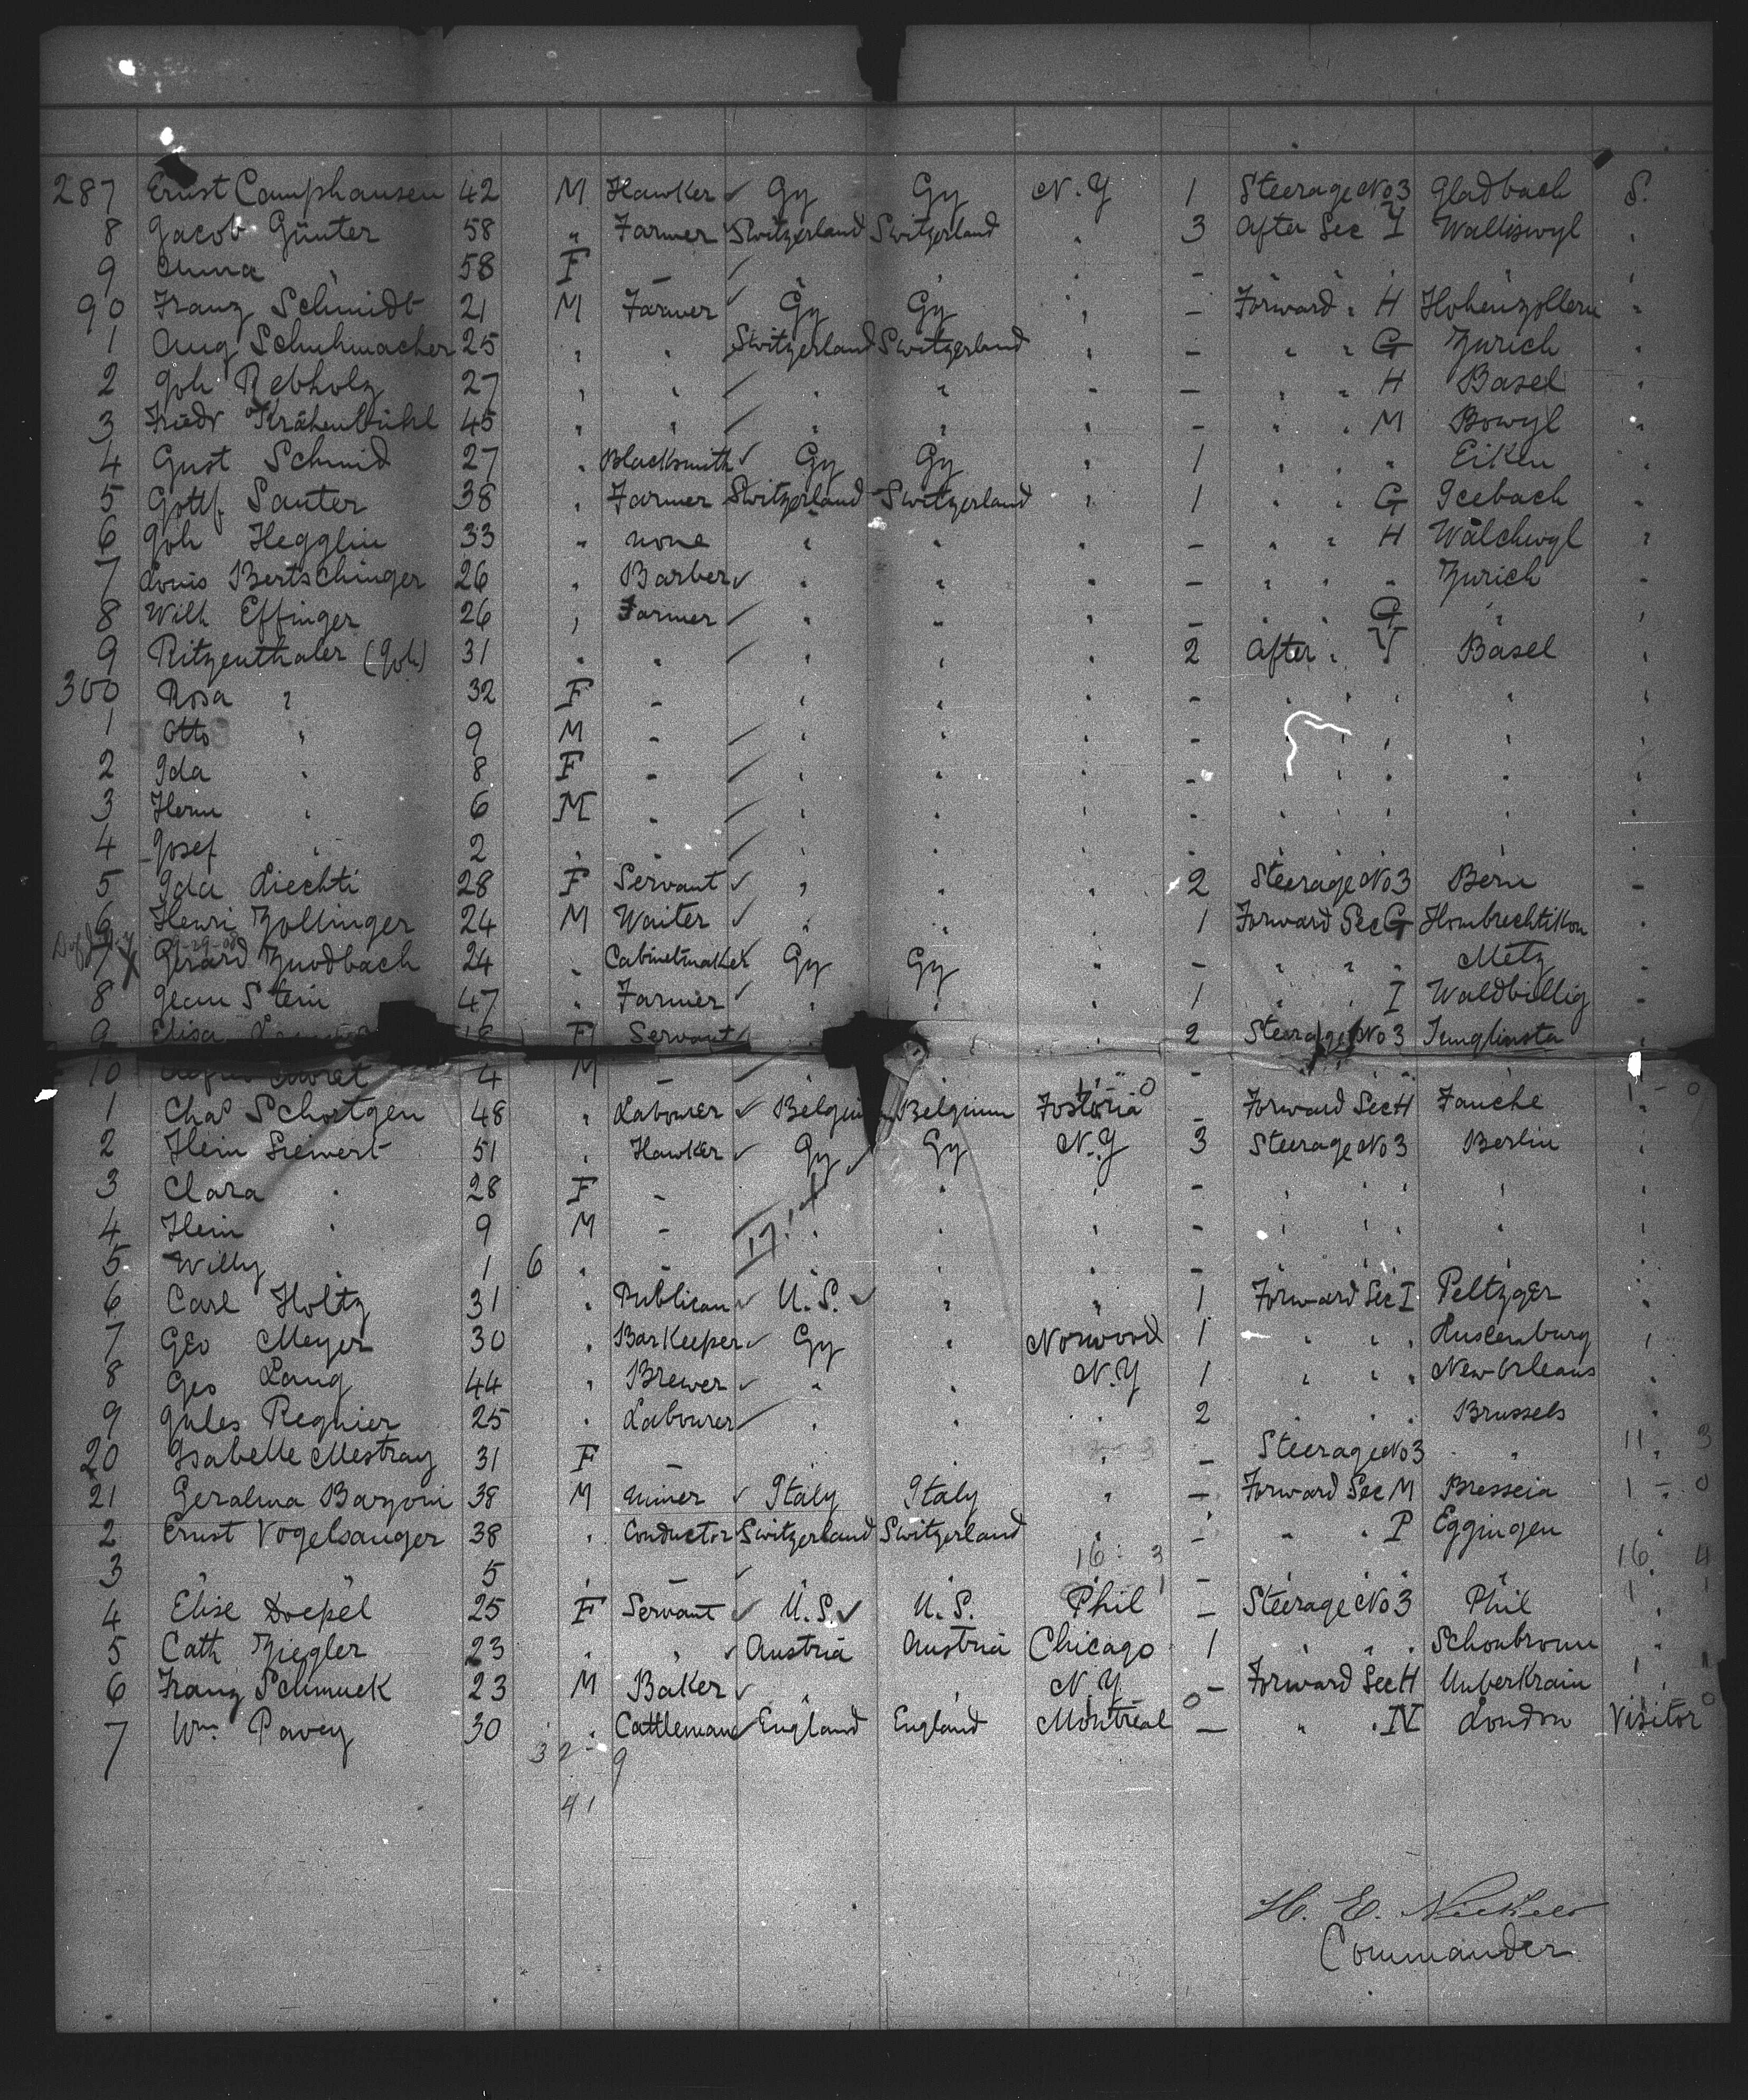 287 Ernst Camphausen 42 M Hawker ✓ Gy Gy N.Y 1 Steerage No 3 Gladbach S.
8 Jacob Günter 58 " Farmer Switzerland Switzerland " 3 After Sec I Walliswyl "
9 Anna " 58 F – ✓ " " " – " " " " "
90 Franz Schmidt 21 M Farmer ✓ Gy Gy " – Forward " H Hohenzollern "
1 Aug Schuhmacher 25 " " Switzerland Switzerland " – " " G Zurich "
2 Joh Rebholz 27 " " ✓ " " " – " " H Basel "
3 Friedr Krähenbühl 45 " " ✓ " " " – " " M Bowyl "
4 Gust Schmid 27 " Blacksmith ✓ Gy Gy " 1 " " " Eiken "
5 Gottf Sauter 38 " Farmer Switzerland Switzerland " 1 " " G Seebach "
6 Joh Hegglin 33 " none " " " – " " H Walchwyl "
7 Louis Bertschinger 26 " Barber ✓ " " " – " " " Zurich "
8 Wilh Effinger 26 " Farmer ✓ " " " – " " G " "
9 Ritzenthaler (Joh) 31 " " ✓ " " " 2 After " V Basel "
300 Rosa " 32 F – " " " – " " " " "
1 Otto " 9 M – ✓ " " " – " " " "
2 Ida " 8 F – ✓ " " " – " " " " "
3 Herm " 6 M – ✓ " " " – " " " " "
4 Josef " 2 " – ✓ " " " – " " " " "
5 Ida Liechti 28 F Servant ✓ " " " 2 Steerage No 3 Bern "
6 Henri Zollinger 24 M Waiter ✓ " " " 1 Forward Sec G Hombrechtikon "
7 Gerard Zuodbach 24 " Cabinetmaker Gy Gy " – " " " Metz "
8 Jean Stein 47 " Farmer ✓ " " " 1 " " I Waldbillig "
9 Elisa F Servant ✓ " " 2 Steerage No 3 Junglinsta "
10 4 M – ✓ –
1 Chas Schoetgen 48 " Labourer ✓ Belgium Belgium Fostoria – Forward Sec H Fauche
2 Hein Siewert 51 " Hawker ✓ Gy ✓ Gy N.Y 3 Steerage No 3 Berlin "
3 Clara " 28 F – " " – " " " " "
4 Hein " 9 M – " " " – " " " " "
5 Willy " 1 6 " – " " – " " " " "
6 Carl Holtz 31 " Publican ✓ U.S. ✓ " " 1 Forward Sec I Peltzger "
7 Geo Meyer 30 " Barkeeper ✓ Gy " Norwood 1 " " " Luxemburg "
8 Geo Lang 44 " Brewer ✓ " " N.Y 1 " " " New Orleans "
9 Jules Regnier 25 " Labourer ✓ " " " 2 " " " Brussels "
20 Isabelle Mestray 31 F – " " " – Steerage No 3 " "
21 Geralma Barzoni 38 M Miner ✓ Italy Italy " – Forward Sec M Bresseia
2 Ernst Vogelsanger 38 " Conductor Switzerland Switzerland " – " " P Eggingen "
3 " " 5 " – ✓ " " " – " " " "
4 Elise Doepel 25 F Servant ✓ U.S. ✓ U.S. Phil – Steerage No 3 Phil "
5 Cath Ziegler 23 " " ✓ Austria Austria Chicago 1 " " " Schonbronn "
6 Franz Schmuck 23 M Baker ✓ " " N.Y. – Forward Sec H Unterkrain "
7 Wm Pavey 30 " Cattleman ✓ England England Montreal – " " IV London Visitor
32 – 9
41
H. E. Nickels
Commander